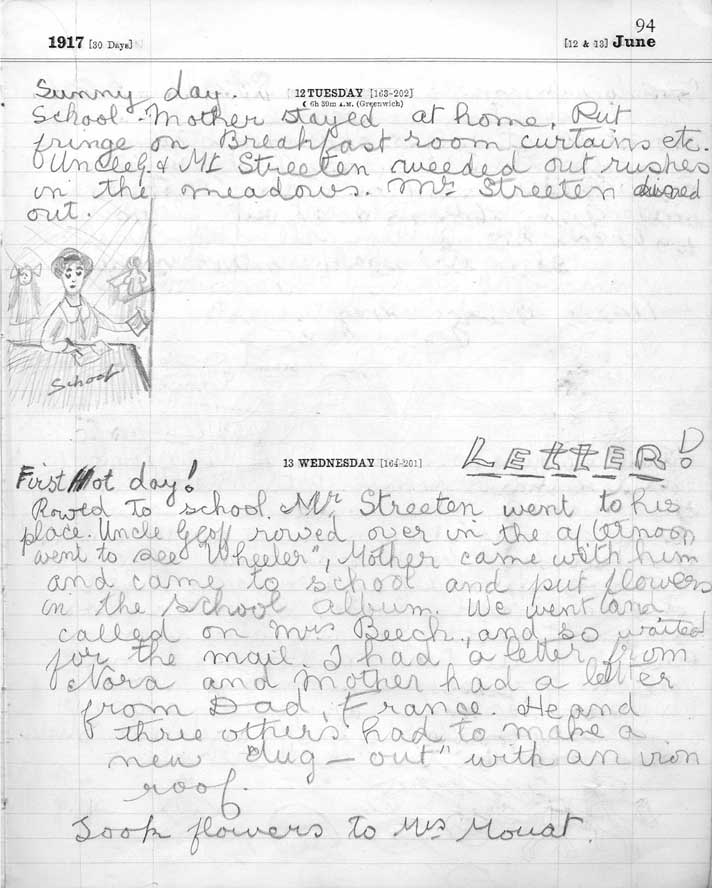 94
1917 [30 Days]
[12 & 13] June
Sunny day.
12 TUESDAY [163-202]
☾ 6h 39m A.M. (Greenwich)
School - Mother stayed at home. Put
fringe on Breakfast room curtains etc.
Uncle G. & Mr Streeten weeded out rushes
in the meadows. Mr Streeten
out.
School
13 WEDNESDAY [164-201]
LETTER!
First Hot day!
Rowed to school. Mr Streeten went to his
place. Uncle Geoff rowed over in the afternoon
went to see "Wheeler", Mother came with him
and came to school and put flowers
in the school album. We went and
called on Mrs Beech, and so waited
for the mail. I had a letter from
Nora and Mother had a letter
from Dad, France. He and
three others had to make a
new "dug-out" with an iron
roof.
Took flowers to Mrs Mouat.